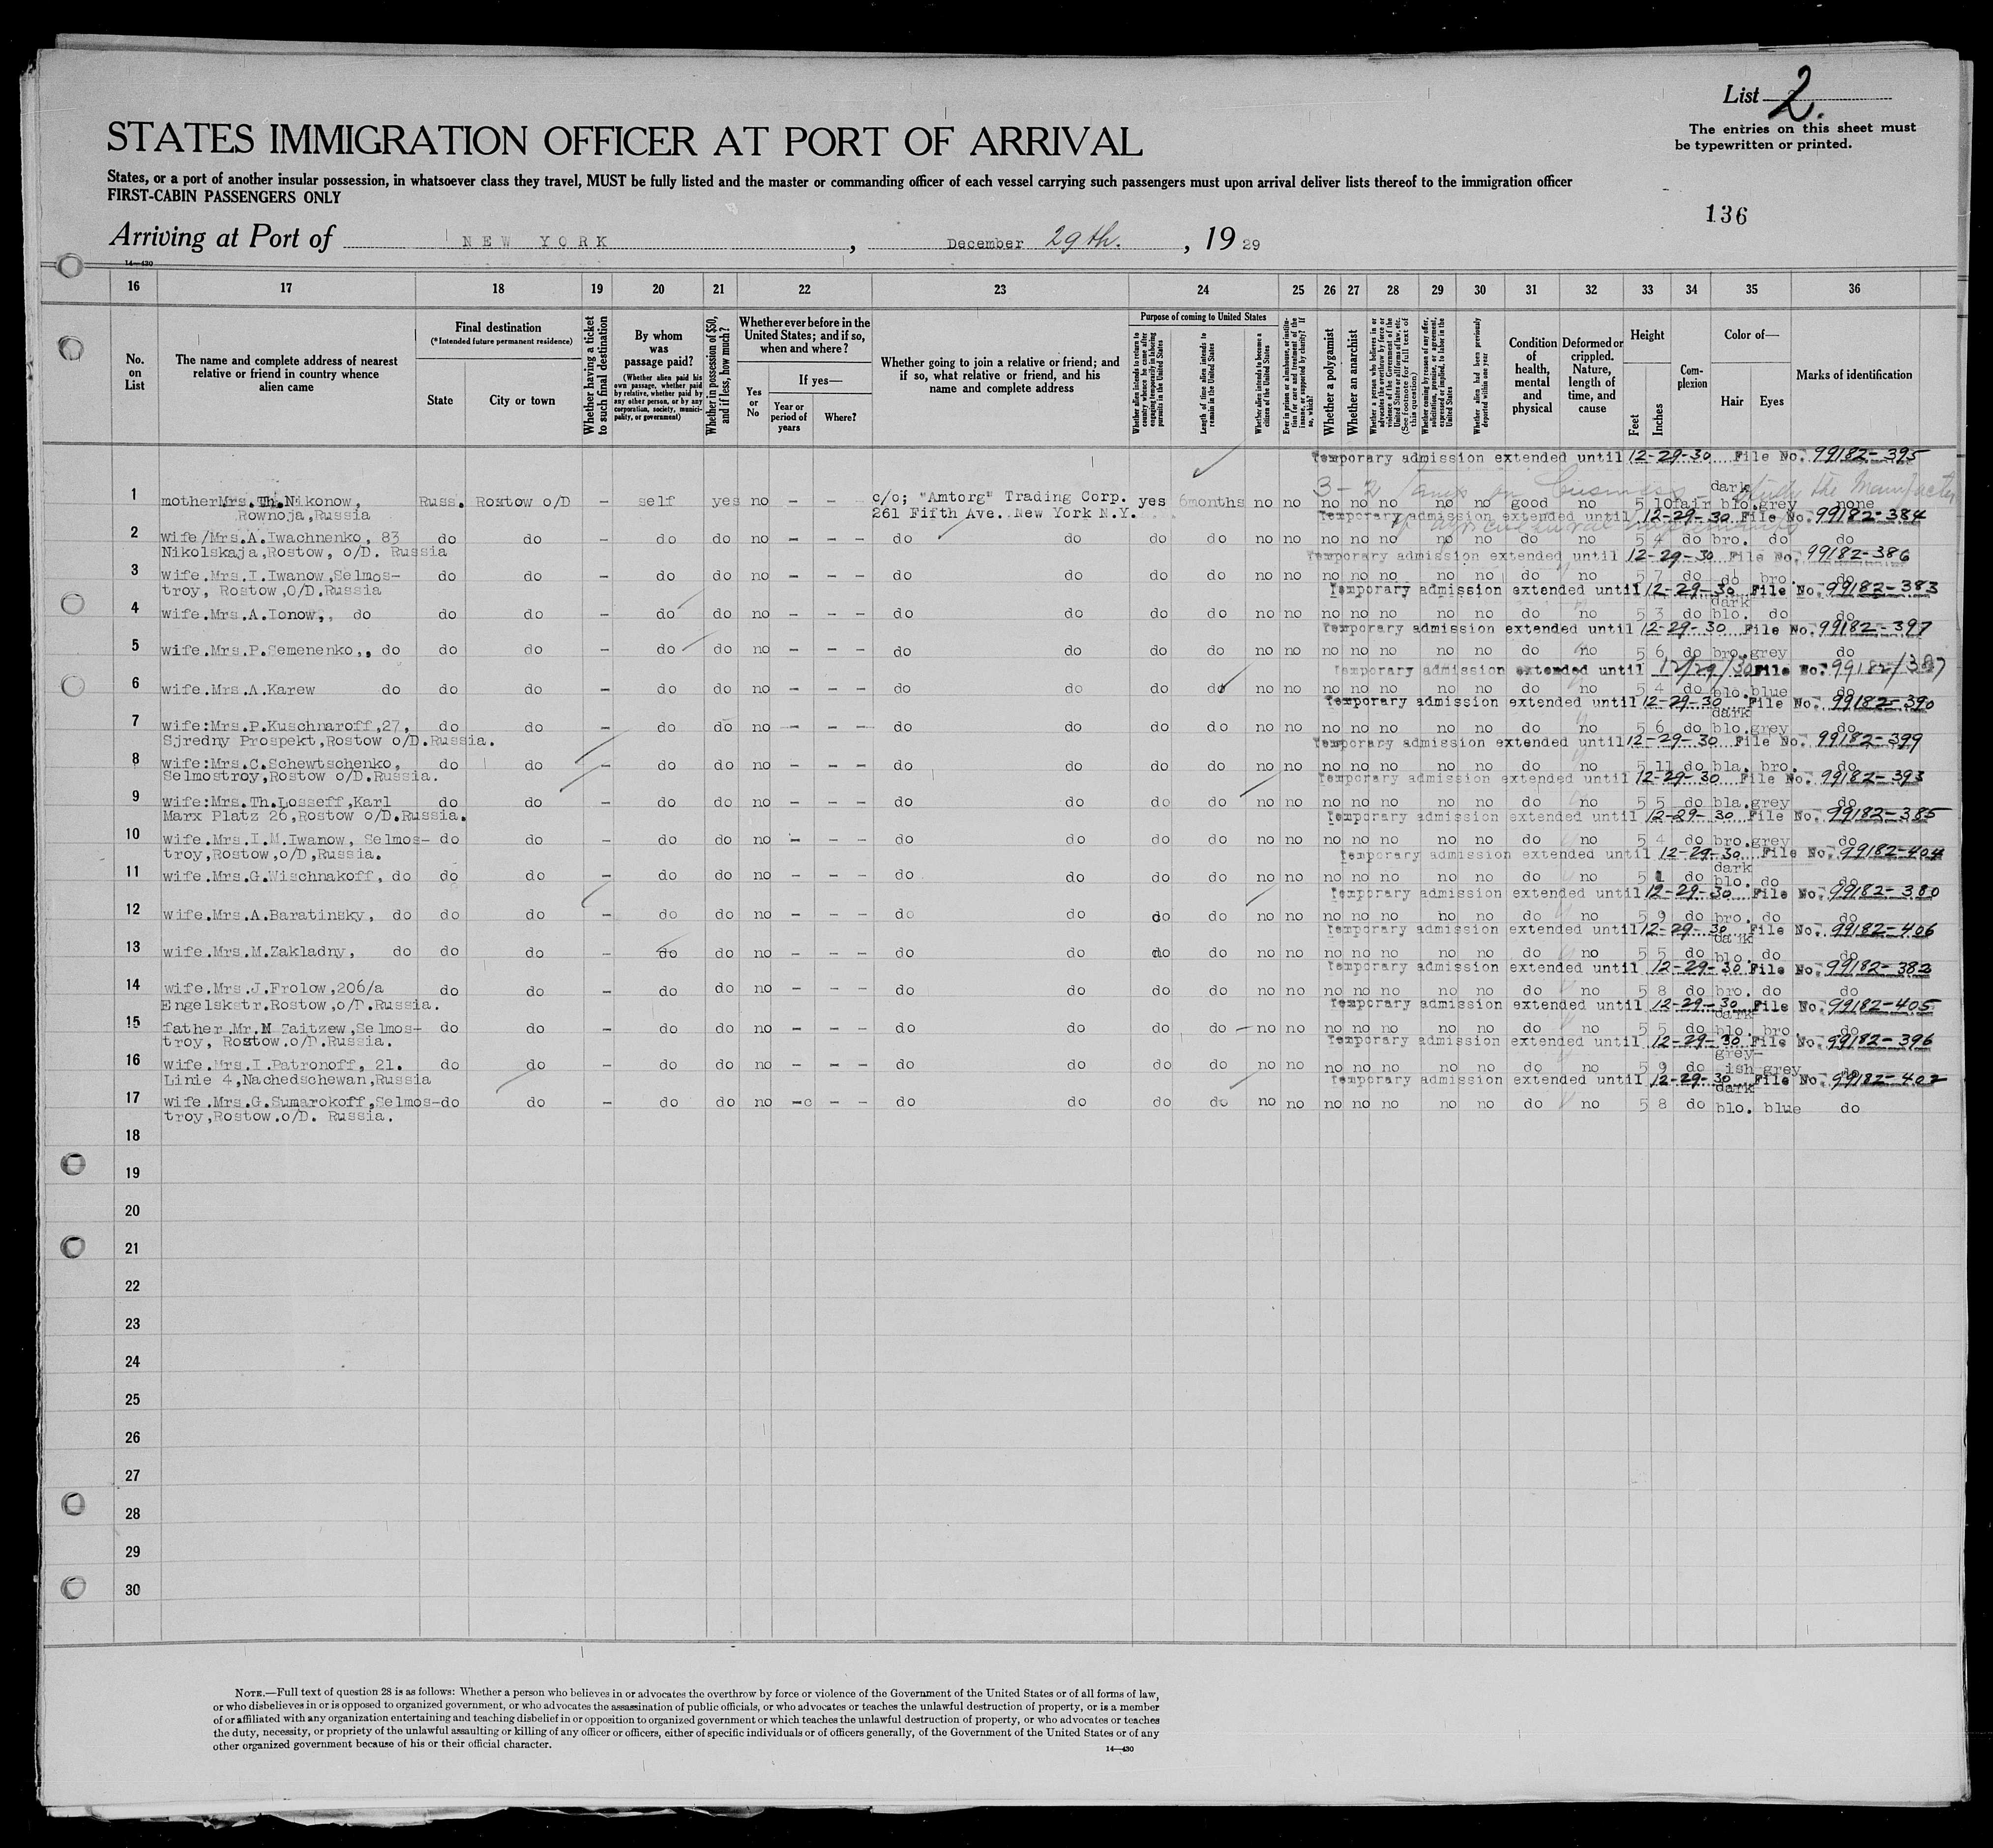 List 2.
The entries on this sheet must
be typewritten or printed.
STATES IMMIGRATION OFFICER AT PORT OF ARRIVAL
States, or a port of another insular possession, in whatsoever class they travel, MUST be fully listed and the master or commanding officer of each vessel carrying such passengers must upon arrival deliver lists thereof to the immigration officer
FIRST-CABIN PASSENGERS ONLY
136
Arriving at Port of NEW YORK, December 29th., 1929
14—430
16 17 18 19 20 21 22 23 24 25 26 27 28 29 30 31 32 33 34 35 36
No. on List
The name and complete address of nearest relative or friend in country whence alien came
Final destination
(*Intended future permanent residence)
State
City or town
Whether having a ticket to such final destination
By whom was passage paid?
(Whether alien paid his own passage, whether paid by relative, whether paid by any other person, or by any corporation, society, municipality, or government)
Whether in possession of $50, and if less, how much?
Whether ever before in the United States; and if so, when and where?
Yes or No
If yes—
Year or period of years
Where?
Whether going to join a relative or friend; and if so, what relative or friend, and his name and complete address
Purpose of coming to United States
Whether alien intends to return to country whence he came after engaging temporarily in laboring pursuits in the United States
Length of time alien intends to remain in the United States
Whether alien intends to become a citizen of the United States
Ever in prison or almshouse, or institution for care and treatment of the insane, or supported by charity? If so, which?
Whether a polygamist
Whether an anarchist
Whether a person who believes in or advocates the overthrow by force or violence of the Government of the United States or all forms of law, etc. (See footnote for full text of this question)
Whether coming by reason of any offer, solicitation, promise, or agreement, expressed or implied, to labor in the United States
Whether alien had been previously deported within one year
Condition of health, mental and physical
Deformed or crippled. Nature, length of time, and cause
Height
Feet
Inches
Complexion
Color of—
Hair
Eyes
Marks of identification
Temporary admission extended until 12-29-30 File No. 99182-395
1 mother Mrs. Th. Nikonow, Russ. Rostow o/D – self yes no – – c/o; "Amtorg" Trading Corp. yes 6months no no no no no no no good no 5 10 fair dark blo. grey none
Rownoja, Russia 261 Fifth Ave. New York N.Y.
Temporary admission extended until 12-29-30 File No. 99182-384
2 wife/Mrs.A.Iwachnenko, 83 do do – do do no – – – do do do do no no no no no no no do no 5 4 do bro. do do
Nikolskaja,Rostow, o/D. Russia
Temporary admission extended until 12-29-30 File No. 99182-386
3 wife.Mrs.I.Iwanow,Selmos- do do – do do no – – – do do do do no no no no no no no do no 5 7 do do bro. do
troy, Rostow,O/D.Russia
Temporary admission extended until 12-29-30 File No. 99182-383
4 wife.Mrs.A.Ionow,, do do do – do do no – – – do do do do no no no no no no no do no 5 3 do dark blo. do do
Temporary admission extended until 12-29-30 File No. 99182-397
5 wife.Mrs.P.Semenenko,, do do do – do do no – – – do do do do no no no no no no no do no 5 6 do bro. grey do
Temporary admission extended until 12/29/30 File No. 99182/387
6 wife.Mrs.A.Karew do do do – do do no – – – do do do do no no no no no no no do no 5 4 do blo. blue do
Temporary admission extended until 12-29-30 File No. 99182-390
7 wife:Mrs.P.Kuschnaroff,27, do do – do do no – – – do do do do no no no no no no no do no 5 6 do dark blo. grey do
Sjredny Prospekt,Rostow o/D.Russia.
Temporary admission extended until 12-29-30 File No. 99182-399
8 wife:Mrs.C.Schewtschenko, do do – do do no – – – do do do do no no no no no no no do no 5 11 do bla. bro. do
Selmostroy,Rostow o/D.Russia.
Temporary admission extended until 12-29-30 File No. 99182-393
9 wife:Mrs.Th.Losseff,Karl do do – do do no – – – do do do do no no no no no no no do no 5 5 do bla. grey do
Marx Platz 26,Rostow o/D.Russia.
Temporary admission extended until 12-29-30 File No. 99182-385
10 wife.Mrs.I.M.Iwanow, Selmos- do do – do do no – – – do do do do no no no no no no no do no 5 4 do bro. grey do
troy,Rostow,o/D,Russia.
Temporary admission extended until 12-29-30 File No. 99182-404
11 wife.Mrs.G.Wischnakoff, do do do – do do no – – – do do do do no no no no no no no do no 5 1 do dark blo. do do
Temporary admission extended until 12-29-30 File No. 99182-380
12 wife.Mrs.A.Baratinsky, do do do – do do no – – – do do do do no no no no no no no do no 5 9 do bro. do do
Temporary admission extended until 12-29-30 File No. 99182-406
13 wife.Mrs.M.Zakladny, do do do – do do no – – – do do do do no no no no no no no do no 5 5 do dark blo. do do
Temporary admission extended until 12-29-30 File No. 99182-382
14 wife.Mrs.J.Frolow,206/a do do – do do no – – – do do do do no no no no no no no do no 5 8 do bro. do do
Engelskstr.Rostow,o/D.Russia.
Temporary admission extended until 12-29-30 File No. 99182-405
15 father.Mr.M Zaitzew,Selmos- do do – do do no – – – do do do do no no no no no no no do no 5 5 do dark blo. bro. do
troy, Rostow.o/D.Russia.
Temporary admission extended until 12-29-30 File No. 99182-396
16 wife.Mrs.I.Patronoff, 21. do do – do do no – – – do do do do no no no no no no no do no 5 9 do grey- ish grey do
Linie 4,Nachedschewan,Russia
Temporary admission extended until 12-29-30 File No. 99182-402
17 wife.Mrs.G.Sumarokoff,Selmos- do do – do do no – – – do do do do no no no no no no no do no 5 8 do dark blo. blue do
troy,Rostow.o/D. Russia.
18
19
20
21
22
23
24
25
26
27
28
29
30
NOTE.—Full text of question 28 is as follows: Whether a person who believes in or advocates the overthrow by force or violence of the Government of the United States or of all forms of law,
or who disbelieves in or is opposed to organized government, or who advocates the assassination of public officials, or who advocates or teaches the unlawful destruction of property, or is a member
of or affiliated with any organization entertaining and teaching disbelief in or opposition to organized government or which teaches the unlawful destruction of property, or who advocates or teaches
the duty, necessity, or propriety of the unlawful assaulting or killing of any officer or officers, either of specific individuals or of officers generally, of the Government of the United States or of any
other organized government because of his or their official character.
14—430